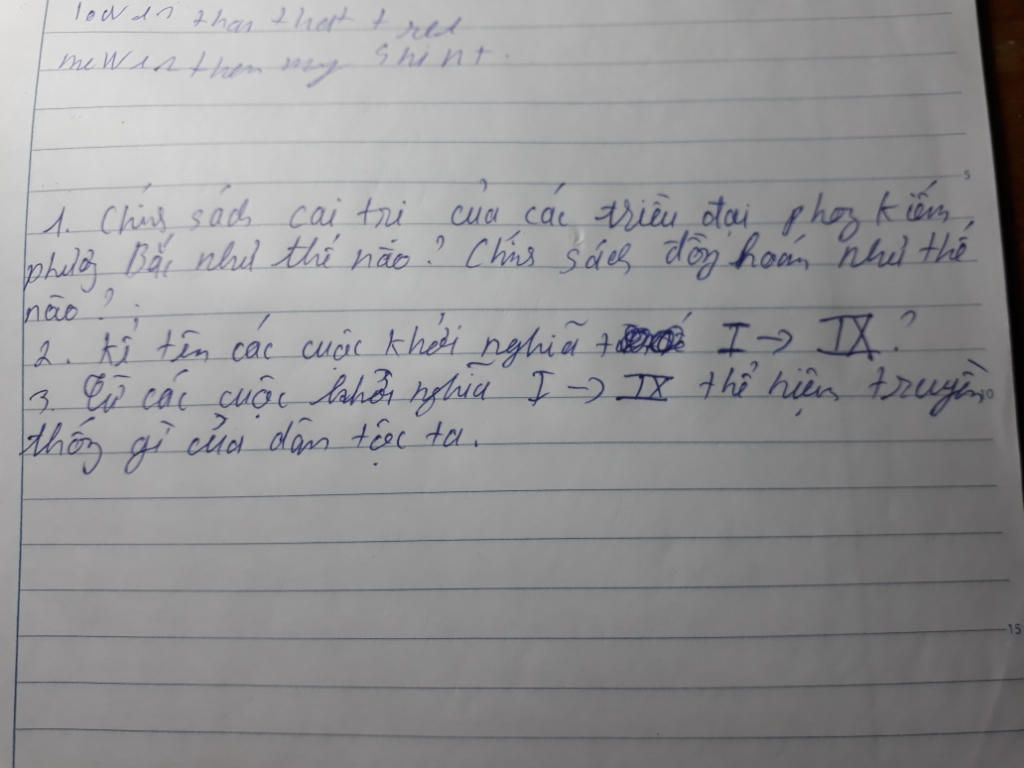 lower than that tree
newer than my shirt.
5
1. Chính sách cai trị của các triều đại phong kiến
phương Bắc như thế nào? Chính sách đồng hoán như thế
nào?;
2. Kể tên các cuộc khởi nghĩa từ I → IX?
3. Từ các cuộc khởi nghĩa I → IX thể hiện truyền
thống gì của dân tộc ta.
15